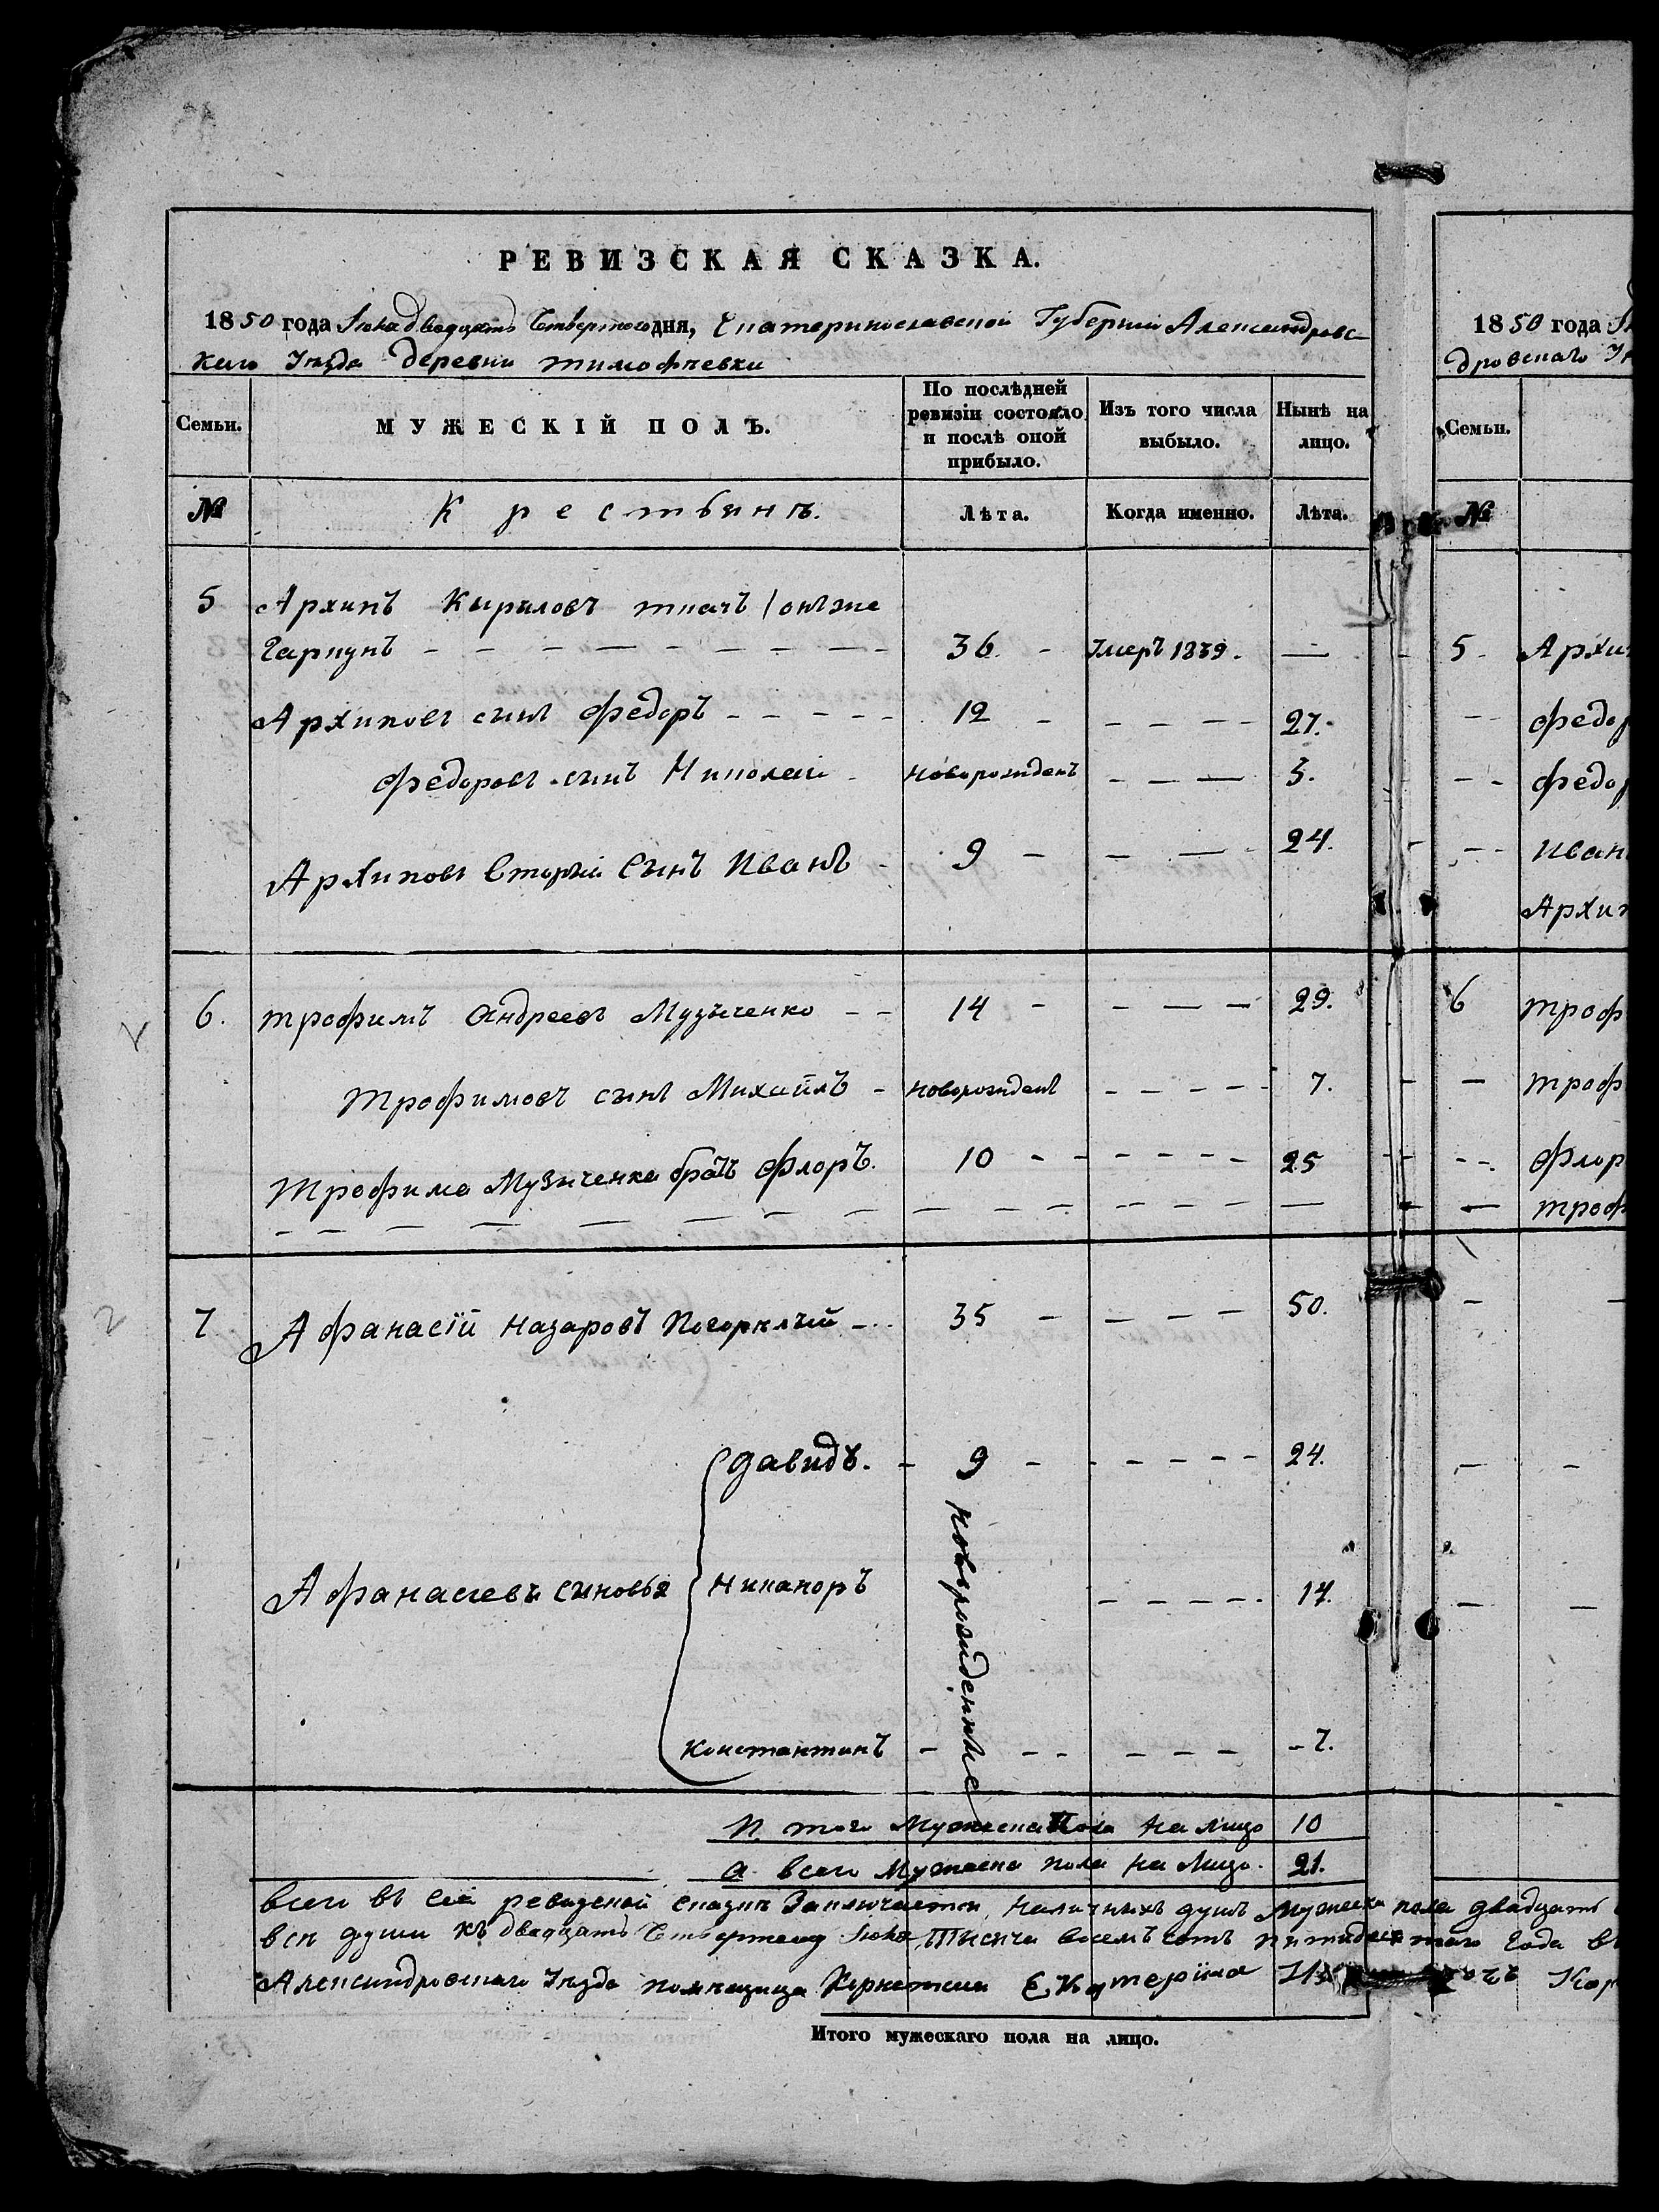 РЕВИЗСКАЯ СКАЗКА.
1850 года Іюня двадцать Четвертого дня, Екатеринославской Губерніи Александровс-
каго Уѣзда деревни тимофѣевки
Семьи.
МУЖЕСКІЙ ПОЛЪ.
По послѣдней ревизіи состояло и послѣ оной прибыло.
Изъ того числа выбыло.
Нынѣ на лицо.
№
Крестьянъ.
Лѣта.
Когда именно.
Лѣта.
5 Архипъ Кириловъ ткачъ / онъ же
Гаркунъ 36. Умеръ 1839. —
Архиповъ сынъ Федоръ 12 27.
Федоровъ сынъ Николай новорожденъ 3.
Архиповъ Вторый Сынъ Иванъ 9 24.
6. трофимъ Андреевъ Музыченко 14 29.
Трофимовъ сынъ Михаилъ новорожденъ 7.
Трофима Музыченка братъ Флоръ. 10 25
7 Афанасій Назаровъ Погорѣлый 35 50.
давидъ. 9 24.
Афанасіевы сыновья Никаноръ новорожденные 14.
Константинъ 7.
И того Мужеска Пола на лицо 10
а всего Мужеска пола на Лицо. 21.
Всего въ сей ревизской сказкѣ Заключается наличныхъ душъ Мужеска пола двадцать
всѣ души къ двадцать Четвертому Іюня Тысяча восемъ сотъ пятидесятаго Года въ
Александровскаго Уѣзда помѣщица Екатерина
Итого мужескаго пола на лицо.
1850 года
дровскаго
Семьи.
№
5. Архи
Федо
Федо
Иван
Архип
6 троф
троф
Флор
троф